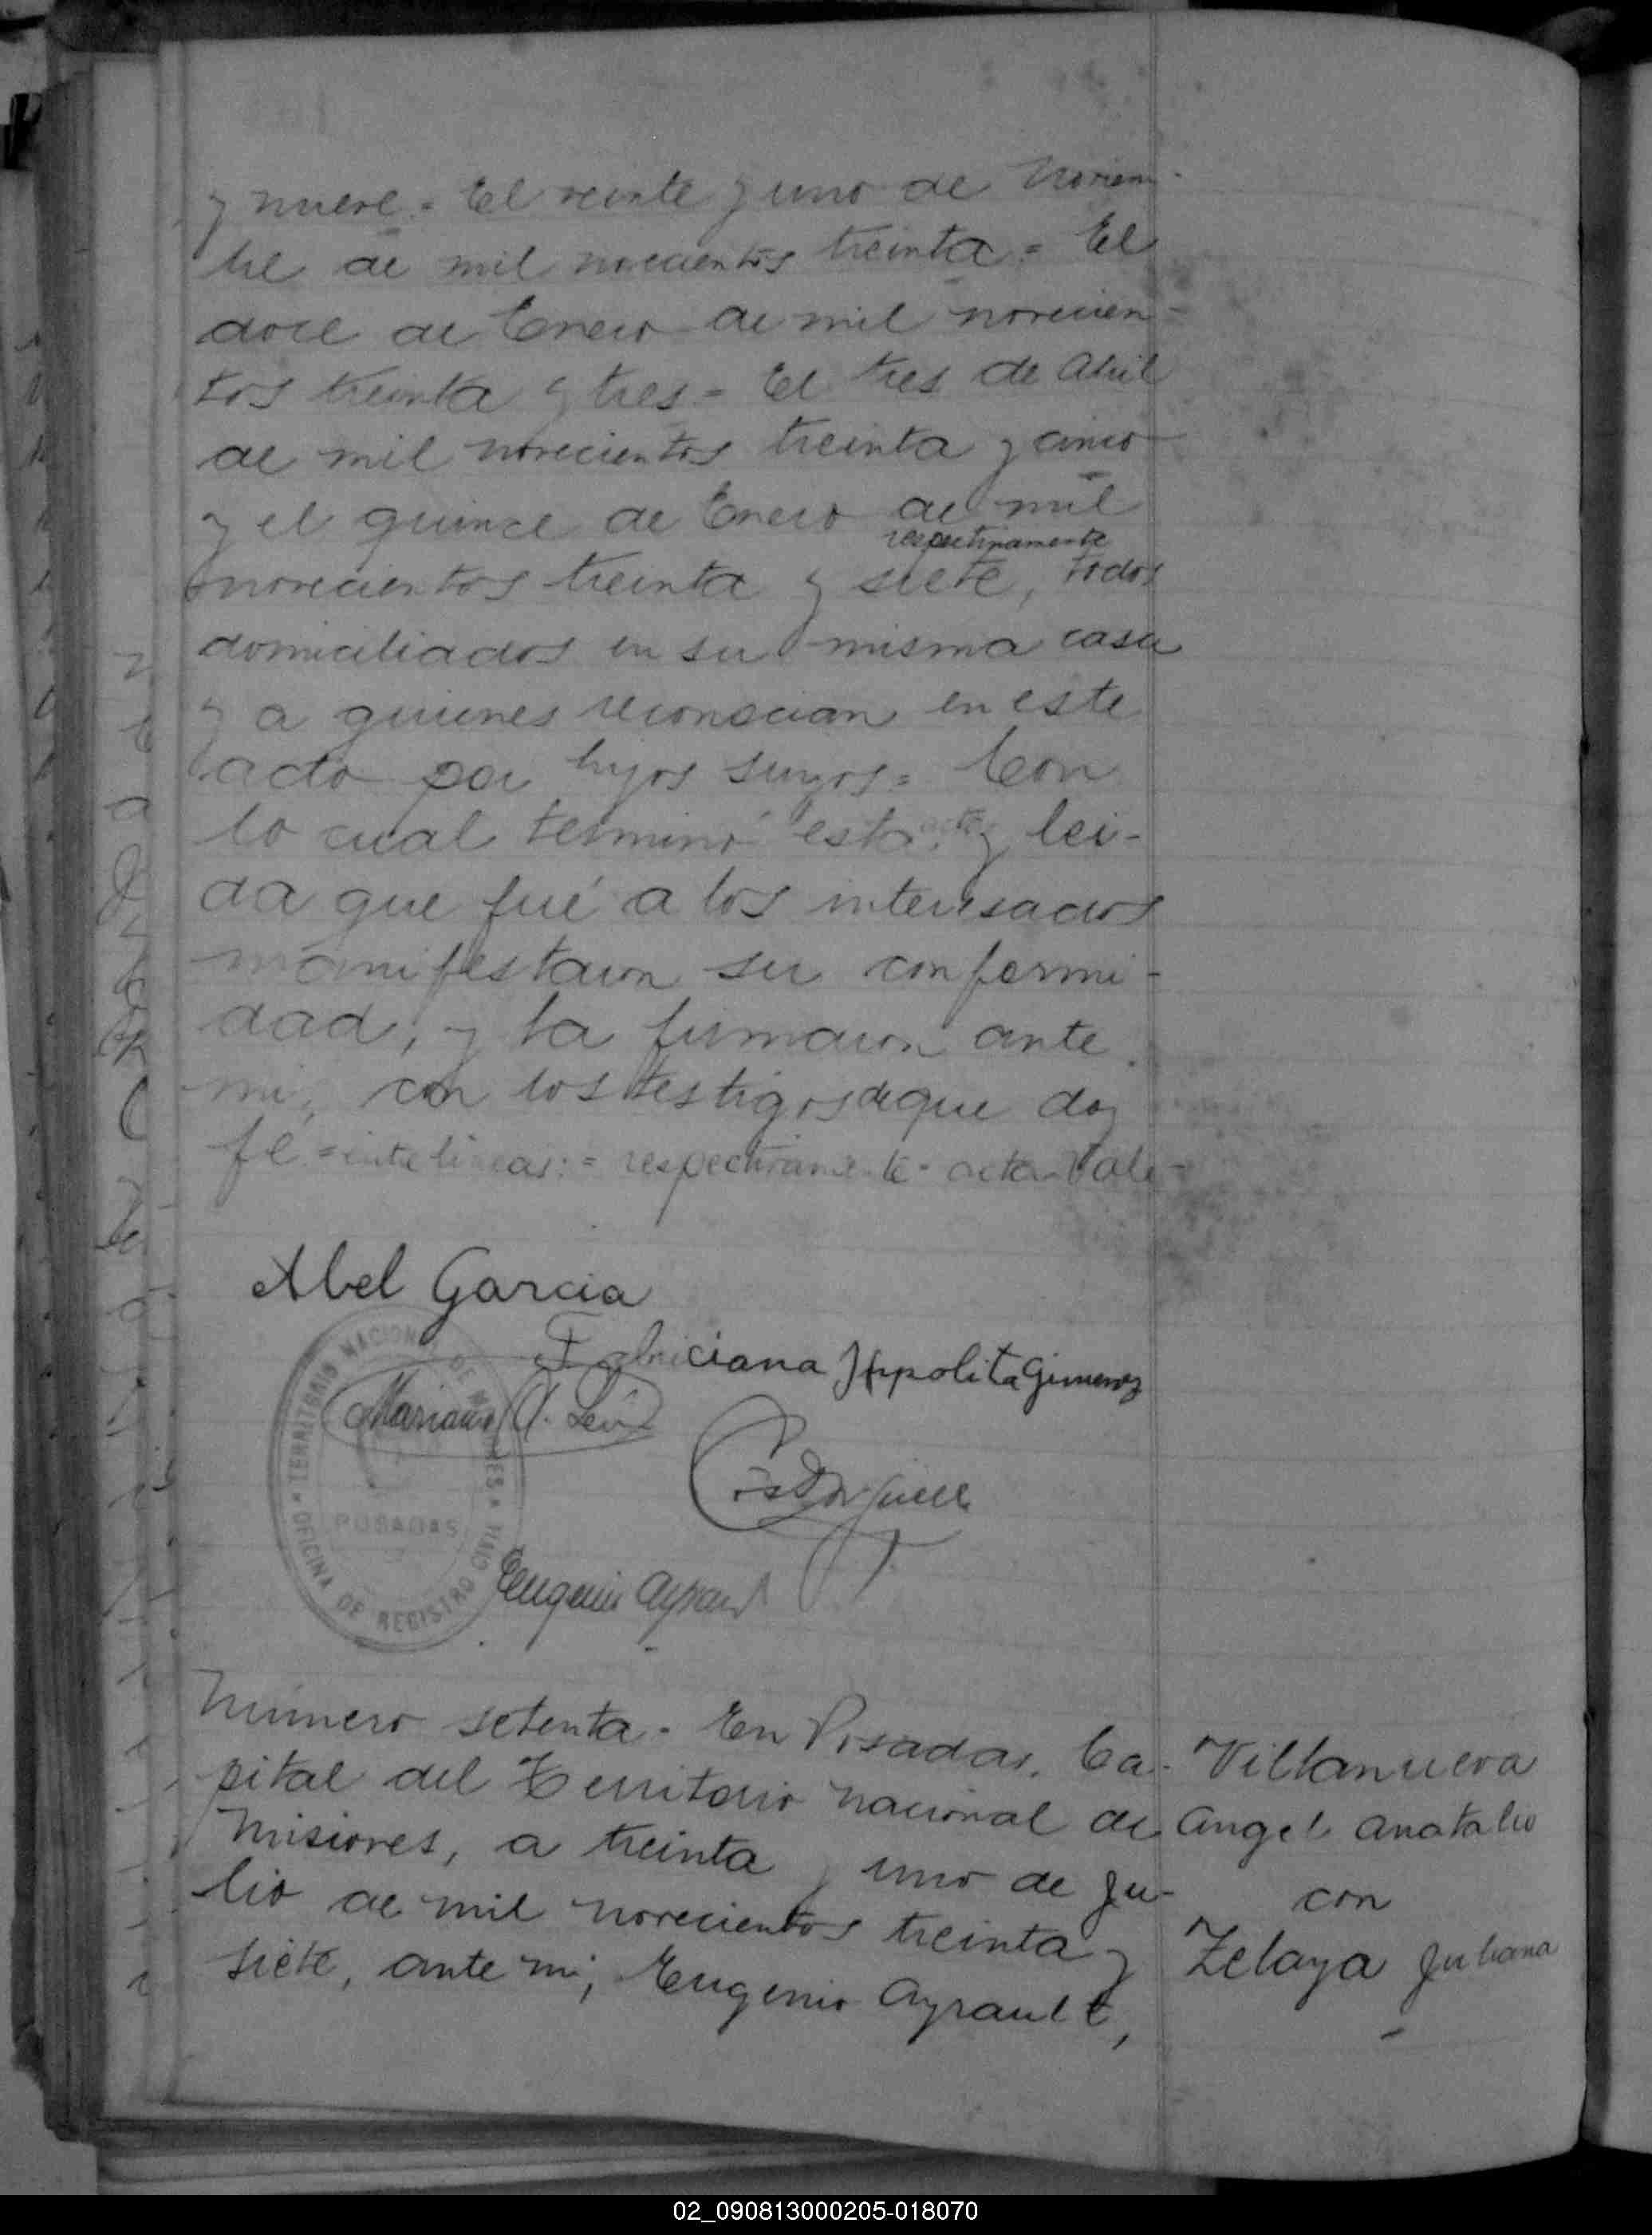 y nueve. = El veinte y uno de Noviem-
bre de mil novecientos treinta = El
doce de Enero de mil novecien-
tos treinta y tres = El tres de Abril
de mil novecientos treinta y cinco
y el quince de Enero de mil
respectivamente
novecientos treinta y siete, todos
domiciliados en su misma casa
y a quienes reconocian en este
acto por hijos suyos = Con
lo cual terminó esta acta y lei-
da que fué a los interesados
manifestaron su conformi-
dad, y la firmaron ante
mi, con los testigos de que doy
fé = entre lineas: = respectivamente - acta Vale-
Abel Garcia
Fabriciana Hypolita Gimenez
Mariano
Eugenio Ayrault
TERRITORIO NACIONAL DE MISIONES
POSADAS
OFICINA DE REGISTRO CIVIL
Número setenta. En Posadas, Ca-
pital del Territorio Nacional de
Misiones, a treinta y uno de Ju-
lio de mil novecientos treinta y
siete, ante mi, Eugenio Ayrault,
Villanueva
Angel Anatalio
con
Zelaya Juliana
02_090813000205-018070